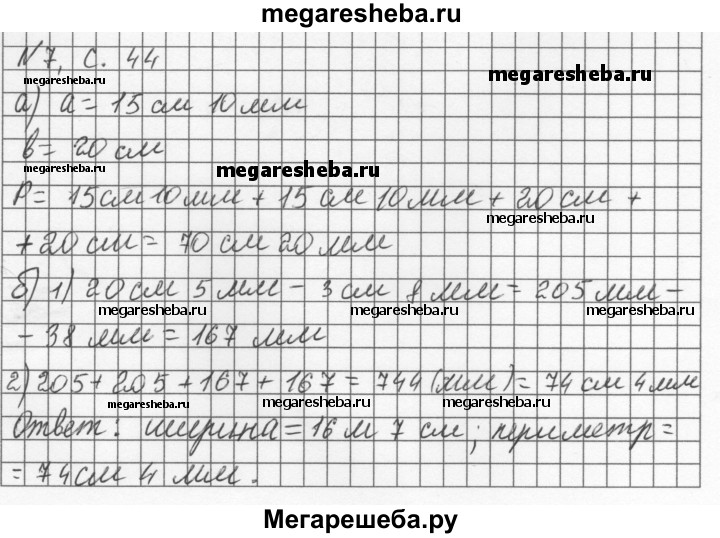 megaresheba.ru
N7, с. 44
megaresheba.ru
megaresheba.ru
а) а = 15 см 10 мм
в = 20 см
megaresheba.ru
megaresheba.ru
Р = 15 см 10 мм + 15 см 10 мм + 20 см +
megaresheba.ru
+ 20 см = 70 см 20 мм
б) 1) 20 см 5 мм - 3 см 8 мм = 205 мм -
megaresheba.ru megaresheba.ru megaresheba.ru
- 38 мм = 167 мм
2) 205 + 205 + 167 + 167 = 744 (мм) = 74 см 4 мм
megaresheba.ru megaresheba.ru megaresheba.ru
Ответ: ширина = 16 м 7 см; периметр =
= 74 см 4 мм.
Мегарешеба.ру